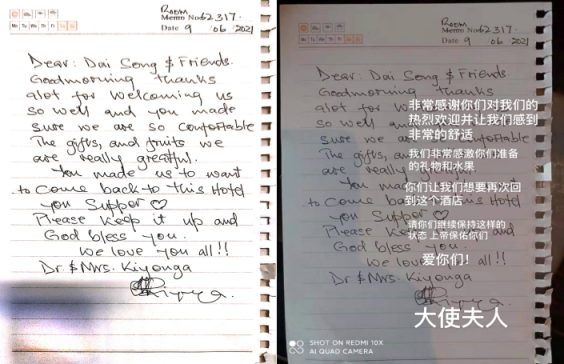 Room
Memo No 62317.
Mo Tu We Th Fr Sa Su
Date 9 / 06 / 2021
Dear: Dai Song & Friends.
Goodmorning thanks
alot for welcoming us
so well and you made
sure we are so comfortable
The gifts, and fruits we
are really greatful.
You made us to want
to come back to this Hotel
you Support ♡
Please keep it up and
God bless you.
we love you all!!
Dr. & Mrs. Kiyonga
Room
Memo No 62317.
Mo Tu We Th Fr Sa Su
Date 9 06 2021
Dear: Dai Song & Friends.
Goodmorning thanks
alot for
so well and
sure we are so comfortable
The gifts, and
are really greatful.
You made
to come back to this Hotel
you Support
Please keep
God bless you.
we love you all!!
Dr. & Mrs. Kiyonga
非常感谢你们对我们的
热烈欢迎并让我们感到
非常的舒适
我们非常感激你们准备
的礼物和水果
你们让我们想要再次回
到这个酒店
请你们继续保持这样的
状态 上帝保佑你们
爱你们！
大使夫人
SHOT ON REDMI 10X
AI QUAD CAMERA